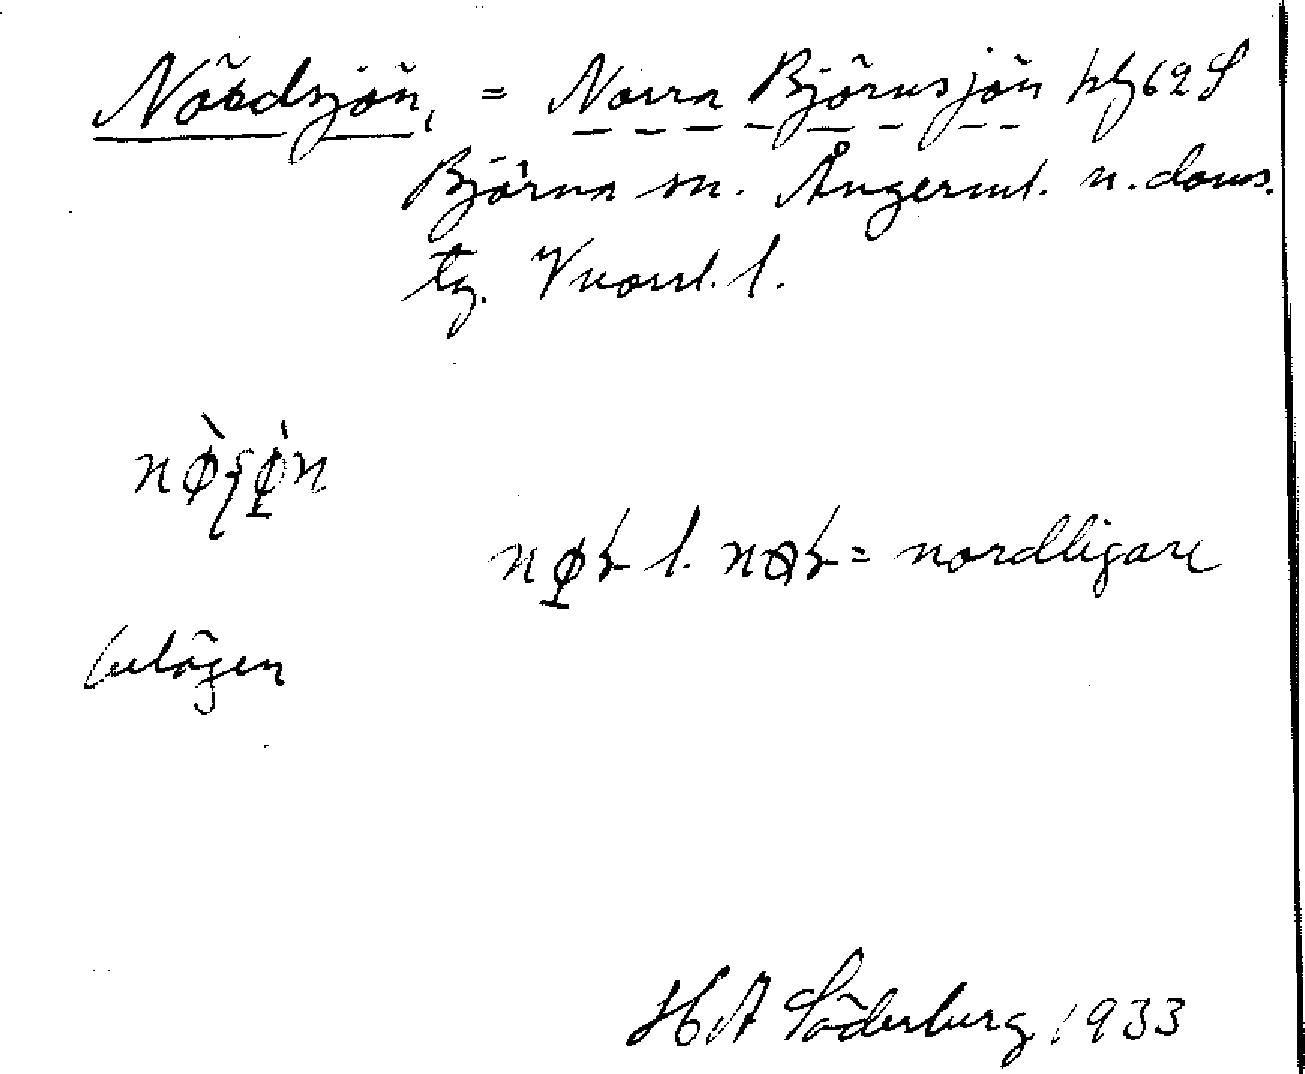 Nördsjön, = Norra Björnsjön kbl 62 S
Björna sn. Ångerml. n. doms.
tg. Vnorrl. l.
nø̀ʃø̀n
l. = nordligare
belägen
H A Söderberg 1933